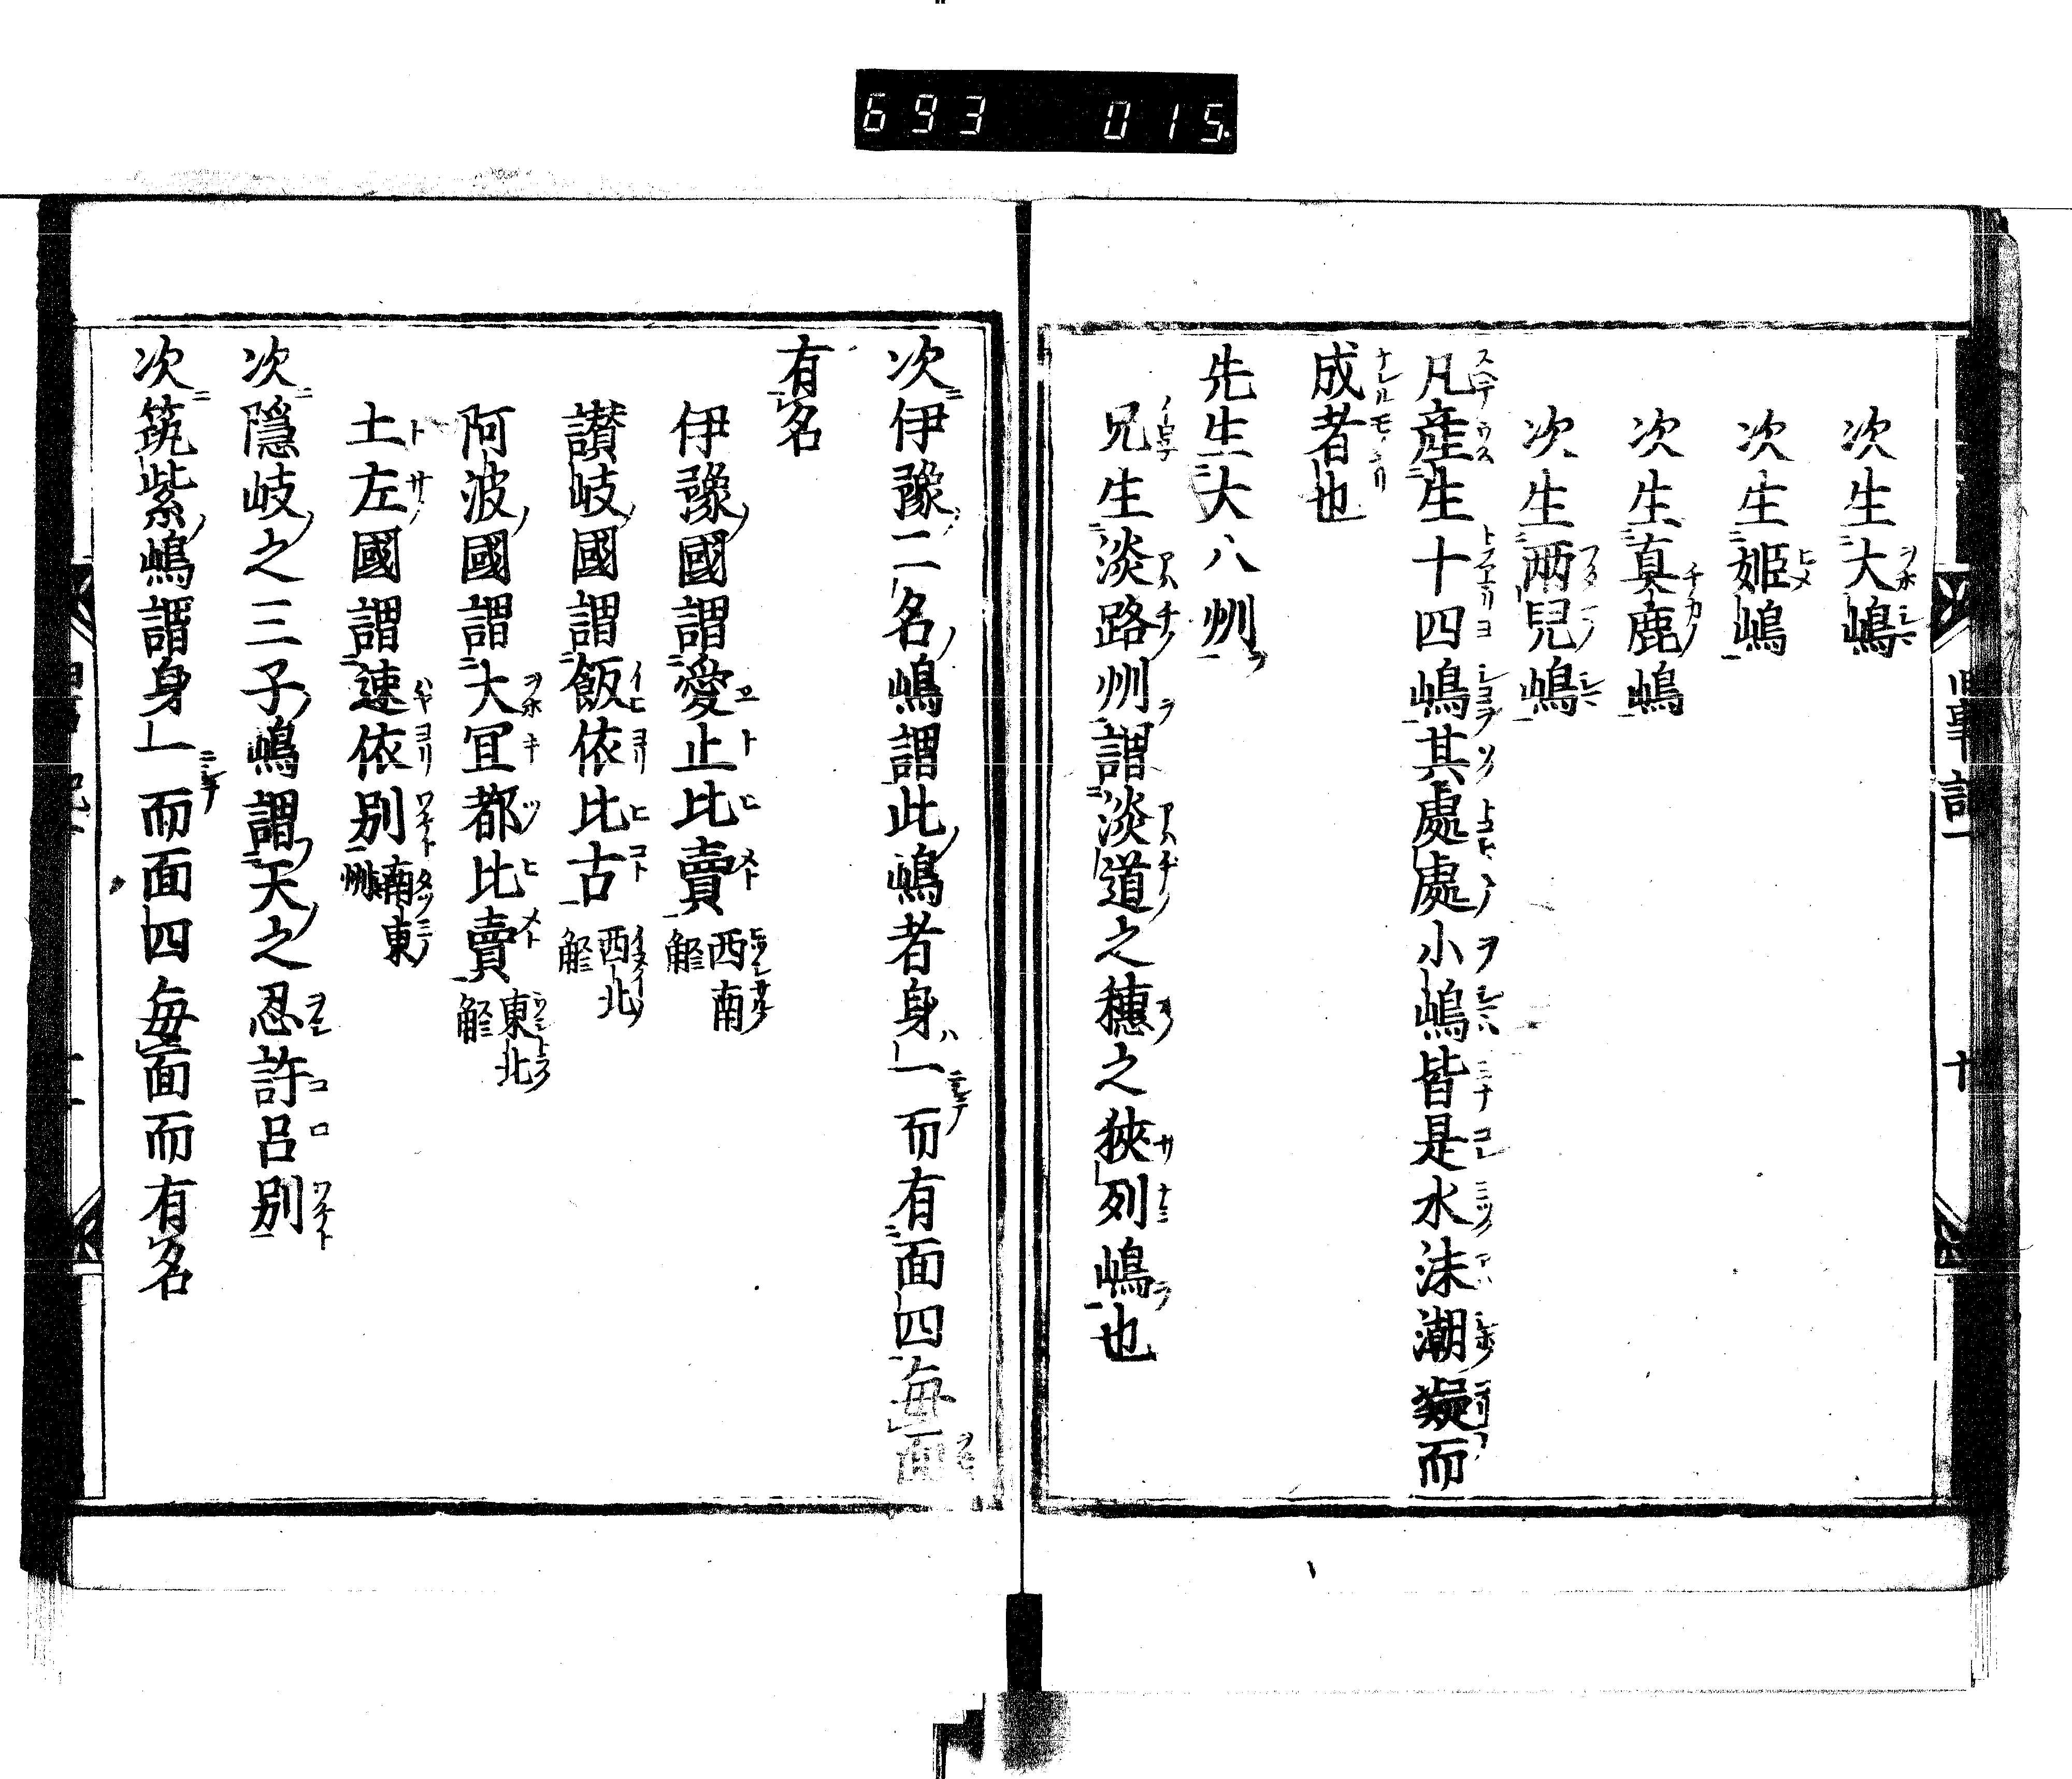 693 015
次生大嶋
次生姬嶋
次生真鹿嶋
次生兩兒嶋
凡產生十四嶋其處處小嶋皆是水沫潮凝而
成者也
先生大八州
兄生淡路州謂淡道之穗之狹列嶋也
次伊豫二名嶋謂此嶋者身一而有面四每面
有名
伊豫國謂愛止比賣西南觧
讃岐國謂飯依比古西北觧
阿波國謂大宜都比賣東北觧
土左國謂速依别南東州
次隱岐之三子嶋謂天之忍許呂别
次筑紫嶋謂身一而面四每面而有名